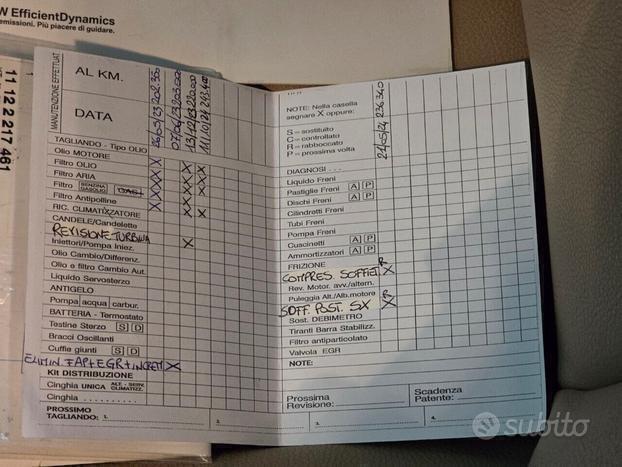 W EfficientDynamics
emissioni. Più piacere di guidare.
11 12 2 217 461
MANUTENZIONE EFFETTUAT.
AL KM.
DATA
26/05/23 202.350
07/06/23 203.000
13/12/23 220.000
11/10/24 243.400
TAGLIANDO - Tipo OLIO
Olio MOTORE X X X X
Filtro OLIO
Filtro ARIA
Filtro BENZINA GASOLIO GAS
Filtro Antipolline
RIC. CLIMATIZZATORE
CANDELE/Candelette
REVISIONE TURBINA
Iniettori/Pompa Iniez.
Olio Cambio/Differenz.
Olio e filtro Cambio Aut.
Liquido Servosterzo
ANTIGELO
Pompa acqua carbur.
BATTERIA - Termostato
Testine Sterzo S D
Bracci Oscillanti
Cuffie giunti S D
ELIMIN. FAP+EGR+ X
Kit DISTRIBUZIONE
Cinghia UNICA ALT. - SERV. CLIMATIZZ.
Cinghia ..........
PROSSIMO
TAGLIANDO: 1.
2.
NOTE: Nella casella
segnare X oppure:
S = sostituito
C = controllato
R = rabboccato
P = prossima volta
21/05/24 236.340
DIAGNOSI ...
Liquido Freni
Pastiglie Freni A P
Dischi Freni A P
Cilindretti Freni
Tubi Freni
Pompa Freni
Cuscinetti A P
Ammortizzatori A P
FRIZIONE
COMPRES. SOFFIET. R X
Rev. Motor. avv./altern.
Puleggia Alt./Alb.motore
SOFF. POST. SX R X
Sost. DEBIMETRO
Tiranti Barra Stabilizz.
Filtro antiparticolato
Valvola EGR
NOTE:
Prossima
Revisione:
Scadenza
Patente:
3.
4.
subito